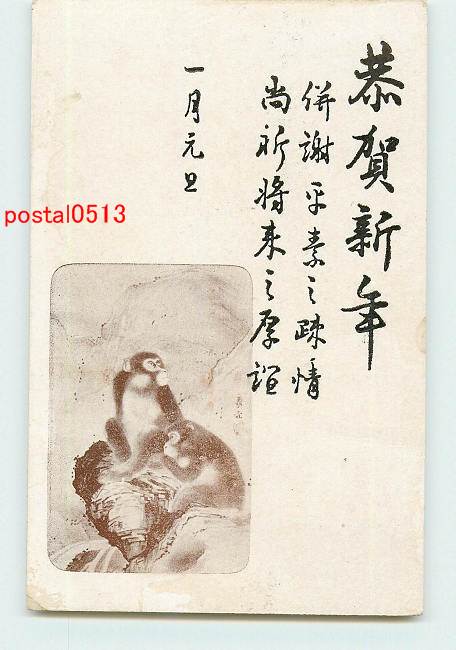 恭賀新年
併謝平素之疎情
尚祈将来之厚誼
一月元旦
postal0513